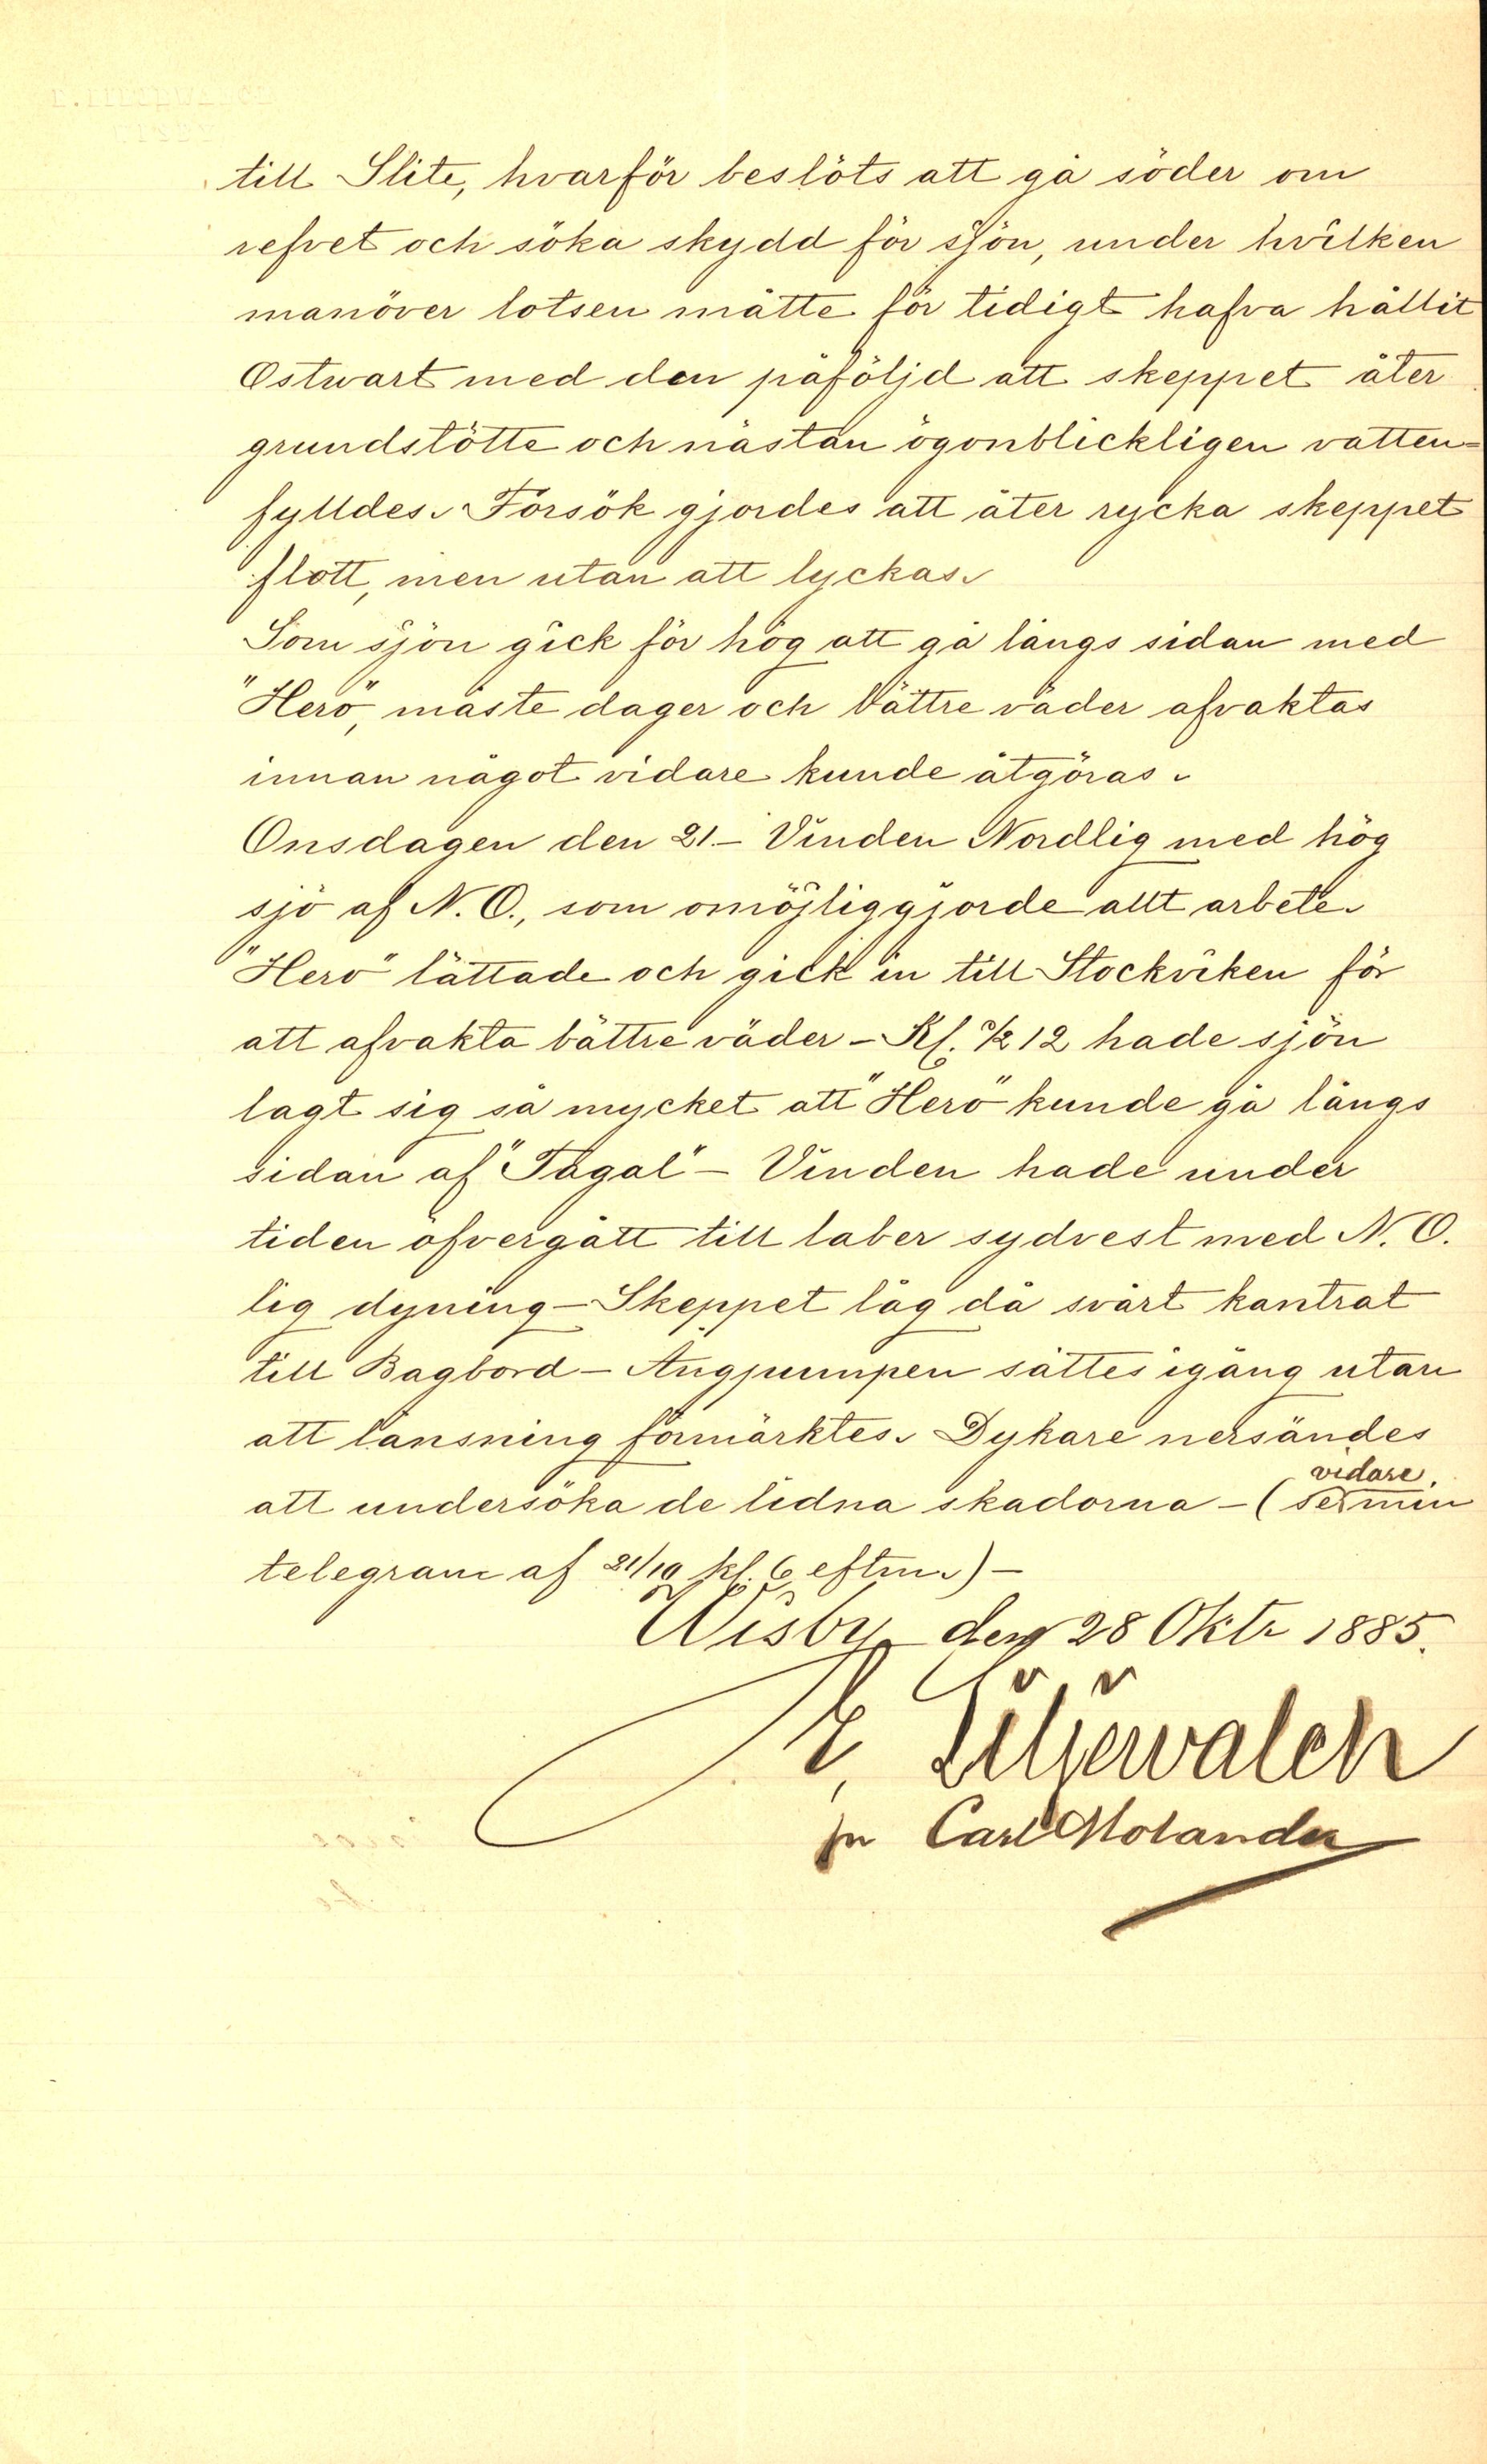 till Slite, hvarför beslöts att gå söder om
refvet och söka skydd för sjön, under hvilken
manöver lotsen måtte för tidigt hafva hållit
Ostwart med den påföljd att skeppet åter
grundstötte och nästan ögonblickligen vatten=
fylldes. Försök gjordes att åter rycka skeppet
flott, men utan att lyckas.
Som sjön gick för hög att gå längs sidan med
"Hero", måste dager och bättre väder afvaktas
innan något vidare kunde åtgöras.
Onsdagen den 21 – Vinden Nordlig med hög
sjö af N. O., som omöjliggjorde allt arbete.
"Hero" lättade och gick in till Stockviken för
att afvakta bättre väder – Kl. ½ 12 hade sjön
lagt sig så mycket att "Hero" kunde gå längs
sidan af "Tagal" – Vinden hade under
tiden öfvergått till laber sydvest med N. O.
lig dyning – Skeppet låg då svårt kantrat
till Bagbord – Ångpumpen sattes igång utan
att länsning förmärktes. Dykare nersändes
vidare
att undersöka de lidna skadorna – (se min
telegram af 21/10 kl. 6 eftm.) –
Wisby den 28 Oktr 1885.
E. Liljewalch
pr Carl Molander